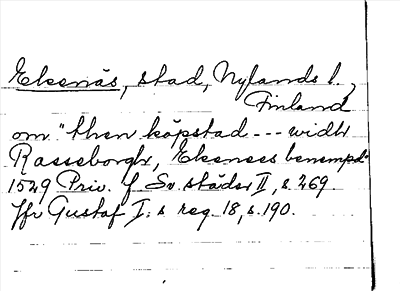 Ekenäs, stad, Nylands l.,
Finland
om "then köpstad --- widh
Rasseborgh, Ekenees benempd"
1549 Priv. f Sv. städer II, s. 269.
Jfr Gustaf I:s reg. 18, s. 190.